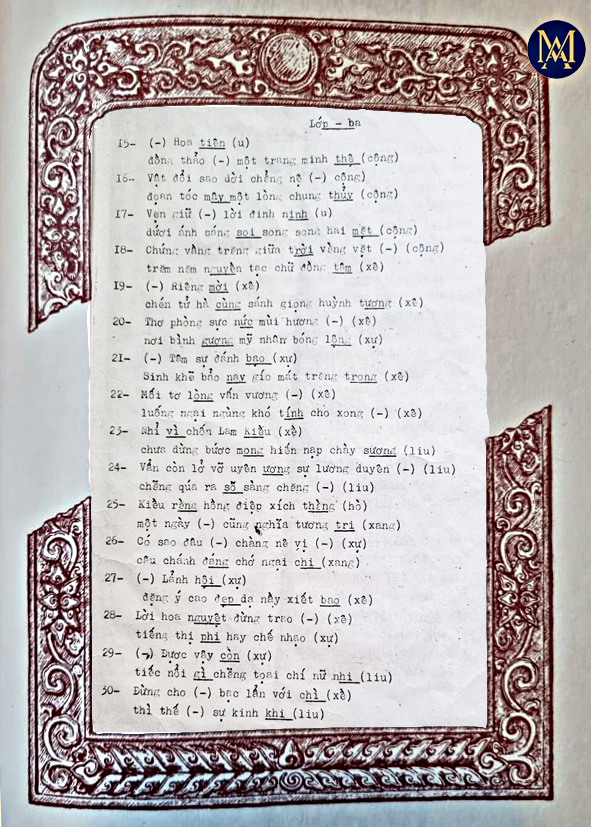 MA
Lớp - ba
15- (-) Hoa tiên (u)
đồng thảo (-) một trang minh thệ (cộng)
16- Vật đổi sao dời chẳng nệ (-) cộng)
đoạn tóc mây một lòng chung thủy (cộng)
17- Vẹn giữ (-) lời đinh ninh (u)
dưới ánh sáng soi song song hai mặt (cộng)
18- Chứng vầng trăng giữa trời vằng vặt (-) (cộng)
trăm năm nguyền tạc chữ đồng tâm (xê)
19- (-) Riêng mời (xê)
chén tử hà cùng sánh giọng huỳnh tương (xê)
20- Thơ phòng sực nức mùi hương (-) (xê)
nơi bình gương mỹ nhân bóng lộng (xự)
21- (-) Tâm sự đánh bạo (xự)
Sinh khẽ bảo nay gíc mắt trăng trong (xê)
22- Mối tơ lòng vấn vương (-) (xê)
luống ngại ngùng khó tính cho xong (-) (xê)
23- Nhỉ vì chốn Lam Kiều (xề)
chưa dừng bước mong hiến nạp chày sương (liu)
24- Vẩn còn lở vỡ uyên ương sự lương duyên (-) (liu)
chẽng qúa ra số sàng chăng (-) (liu)
25- Kiều rằng hồng điệp xích thằng (hò)
một ngày (-) cũng nghĩa tương tri (xang)
26- Có sao đâu (-) chàng nê vị (-) (xự)
câu chánh đáng chớ ngại chi (xang)
27- (-) Lảnh hội (xự)
đặng ý cao đẹp dạ nầy xiết bao (xê)
28- Lời hoa nguyệt đừng trao (-) (xê)
tiếng thị phi hay chế nhạo (xự)
29- (-) Được vậy còn (xự)
tiếc nổi gì chẽng tọai chí nữ nhi (liu)
30- Đừng cho (-) bạc lần với chì (xề)
thì thế (-) sự kinh khi (liu)